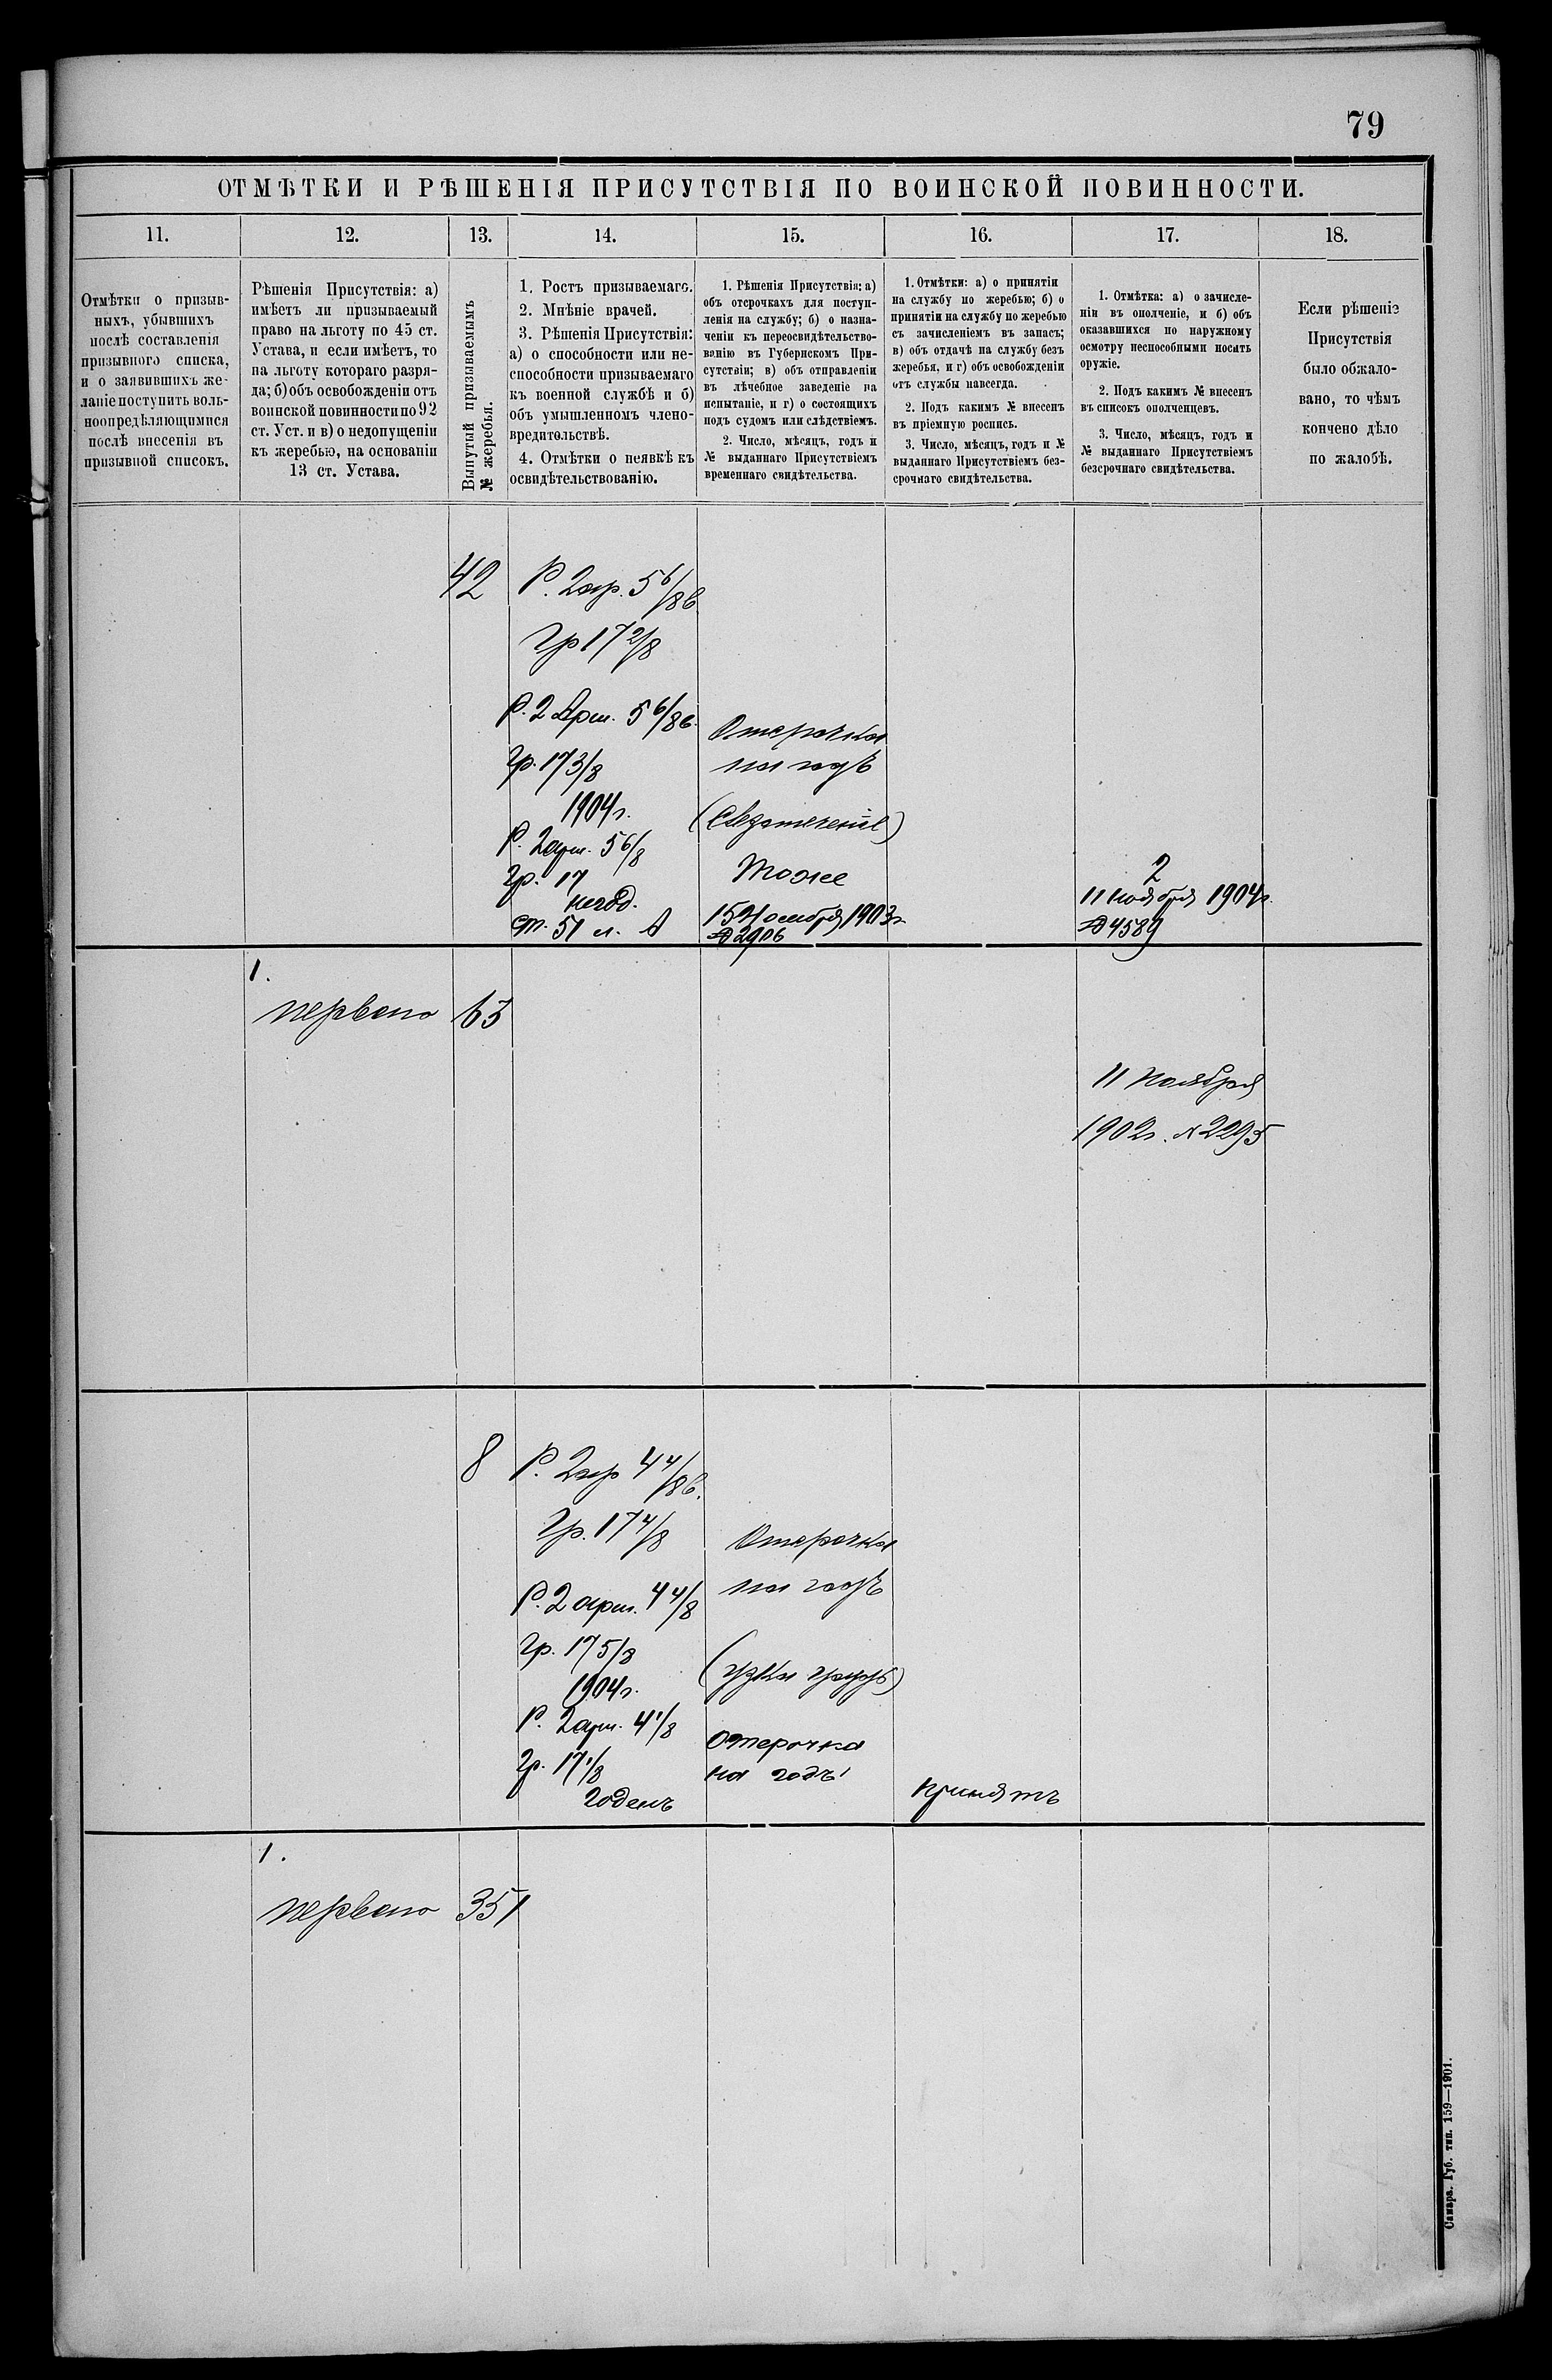 79
ОТМѢТКИ И РѢШЕНІЯ ПРИСУТСТВІЯ ПО ВОИНСКОЙ ПОВИННОСТИ.
11.
12.
13.
14.
15.
16.
17.
18.
Отмѣтки о призыв-
ныхъ, убывшихъ
послѣ составленія
призывного списка,
и о заявившихъ же-
ланіе поступить воль-
ноопредѣляющимися
послѣ внесенія въ
призывной списокъ.
Рѣшенія Присутствія: а)
имѣетъ ли призываемый
право на льготу по 45 ст.
Устава, и если имѣетъ, то
на льготу котораго разря-
да; б) объ освобожденіи отъ
воинской повинности по 92
ст. Уст. и в) о недопущеніи
къ жеребью, на основаніи
13 ст. Устава.
Вынутый призываемымъ
№ жеребья.
1. Ростъ призываемаго.
2. Мнѣніе врачей.
3. Рѣшенія Присутствія:
а) о способности или не-
способности призываемаго
къ военной службѣ и б)
объ умышленномъ члено-
вредительствѣ.
4. Отмѣтки о неявкѣ къ
освидѣтельствованію.
1. Рѣшенія Присутствія: а)
объ отсрочкахъ для поступ-
ленія на службу; б) о назна-
ченіи къ переосвидѣтельство-
ванію въ Губернскомъ При-
сутствіи; в) объ отправленіи
въ лѣчебное заведеніе на
испытаніе, и г) о состоящихъ
подъ судомъ или слѣдствіемъ.
2. Число, мѣсяцъ, годъ и
№ выданнаго Присутствіемъ
временнаго свидѣтельства.
1. Отмѣтки: а) о принятіи
на службу по жеребью; б) о
принятіи на службу по жеребью
съ зачисленіемъ въ запасъ;
в) объ отдачѣ на службу безъ
жеребья, и г) объ освобожденіи
отъ службы навсегда.
2. Подъ какимъ № внесенъ
въ пріемную роспись.
3. Число, мѣсяцъ, годъ и №
выданнаго Присутствіемъ без-
срочнаго свидѣтельства.
1. Отмѣтка: а) о зачисле-
ніи въ ополченіе, и б) объ
оказавшихся по наружному
осмотру неспособными носить
оружіе.
2. Подъ какимъ № внесенъ
въ списокъ ополченцевъ.
3. Число, мѣсяцъ, годъ и
№ выданнаго Присутствіемъ
безсрочнаго свидѣтельства.
Если рѣшеніе
Присутствія
было обжало-
вано, то чѣмъ
кончено дѣло
по жалобѣ.
42
Р. 2 ар. 5 6/8 в
Гр 17 2/8
Р. 2 Арш. 5 6/8 в.
Гр. 17 3/8
1904 г.
Р. 2 арш. 5 6/8
Гр. 17
негод.
ст. 51 л. А
Отсрочка
на годъ
Тоже
15 Ноября 1903 г.
№ 2906
2
11 ноября 1904 г.
№ 4589
1.
первано
63
11 Ноября
1902 г. № 2295
8
Р. 2 ар 4 4/8 в.
Гр. 17 4/8
Р. 2 арш. 4 4/8
Гр. 17 5/8
1904 г.
Р. 2 арш. 4 1/8
Гр. 17 1/8
годенъ
Отсрочка
на годъ
(узкая грудь)
Отсрочка
на годъ
принятъ
1.
первано
351
Самара. Губ. тип. 159—1901.